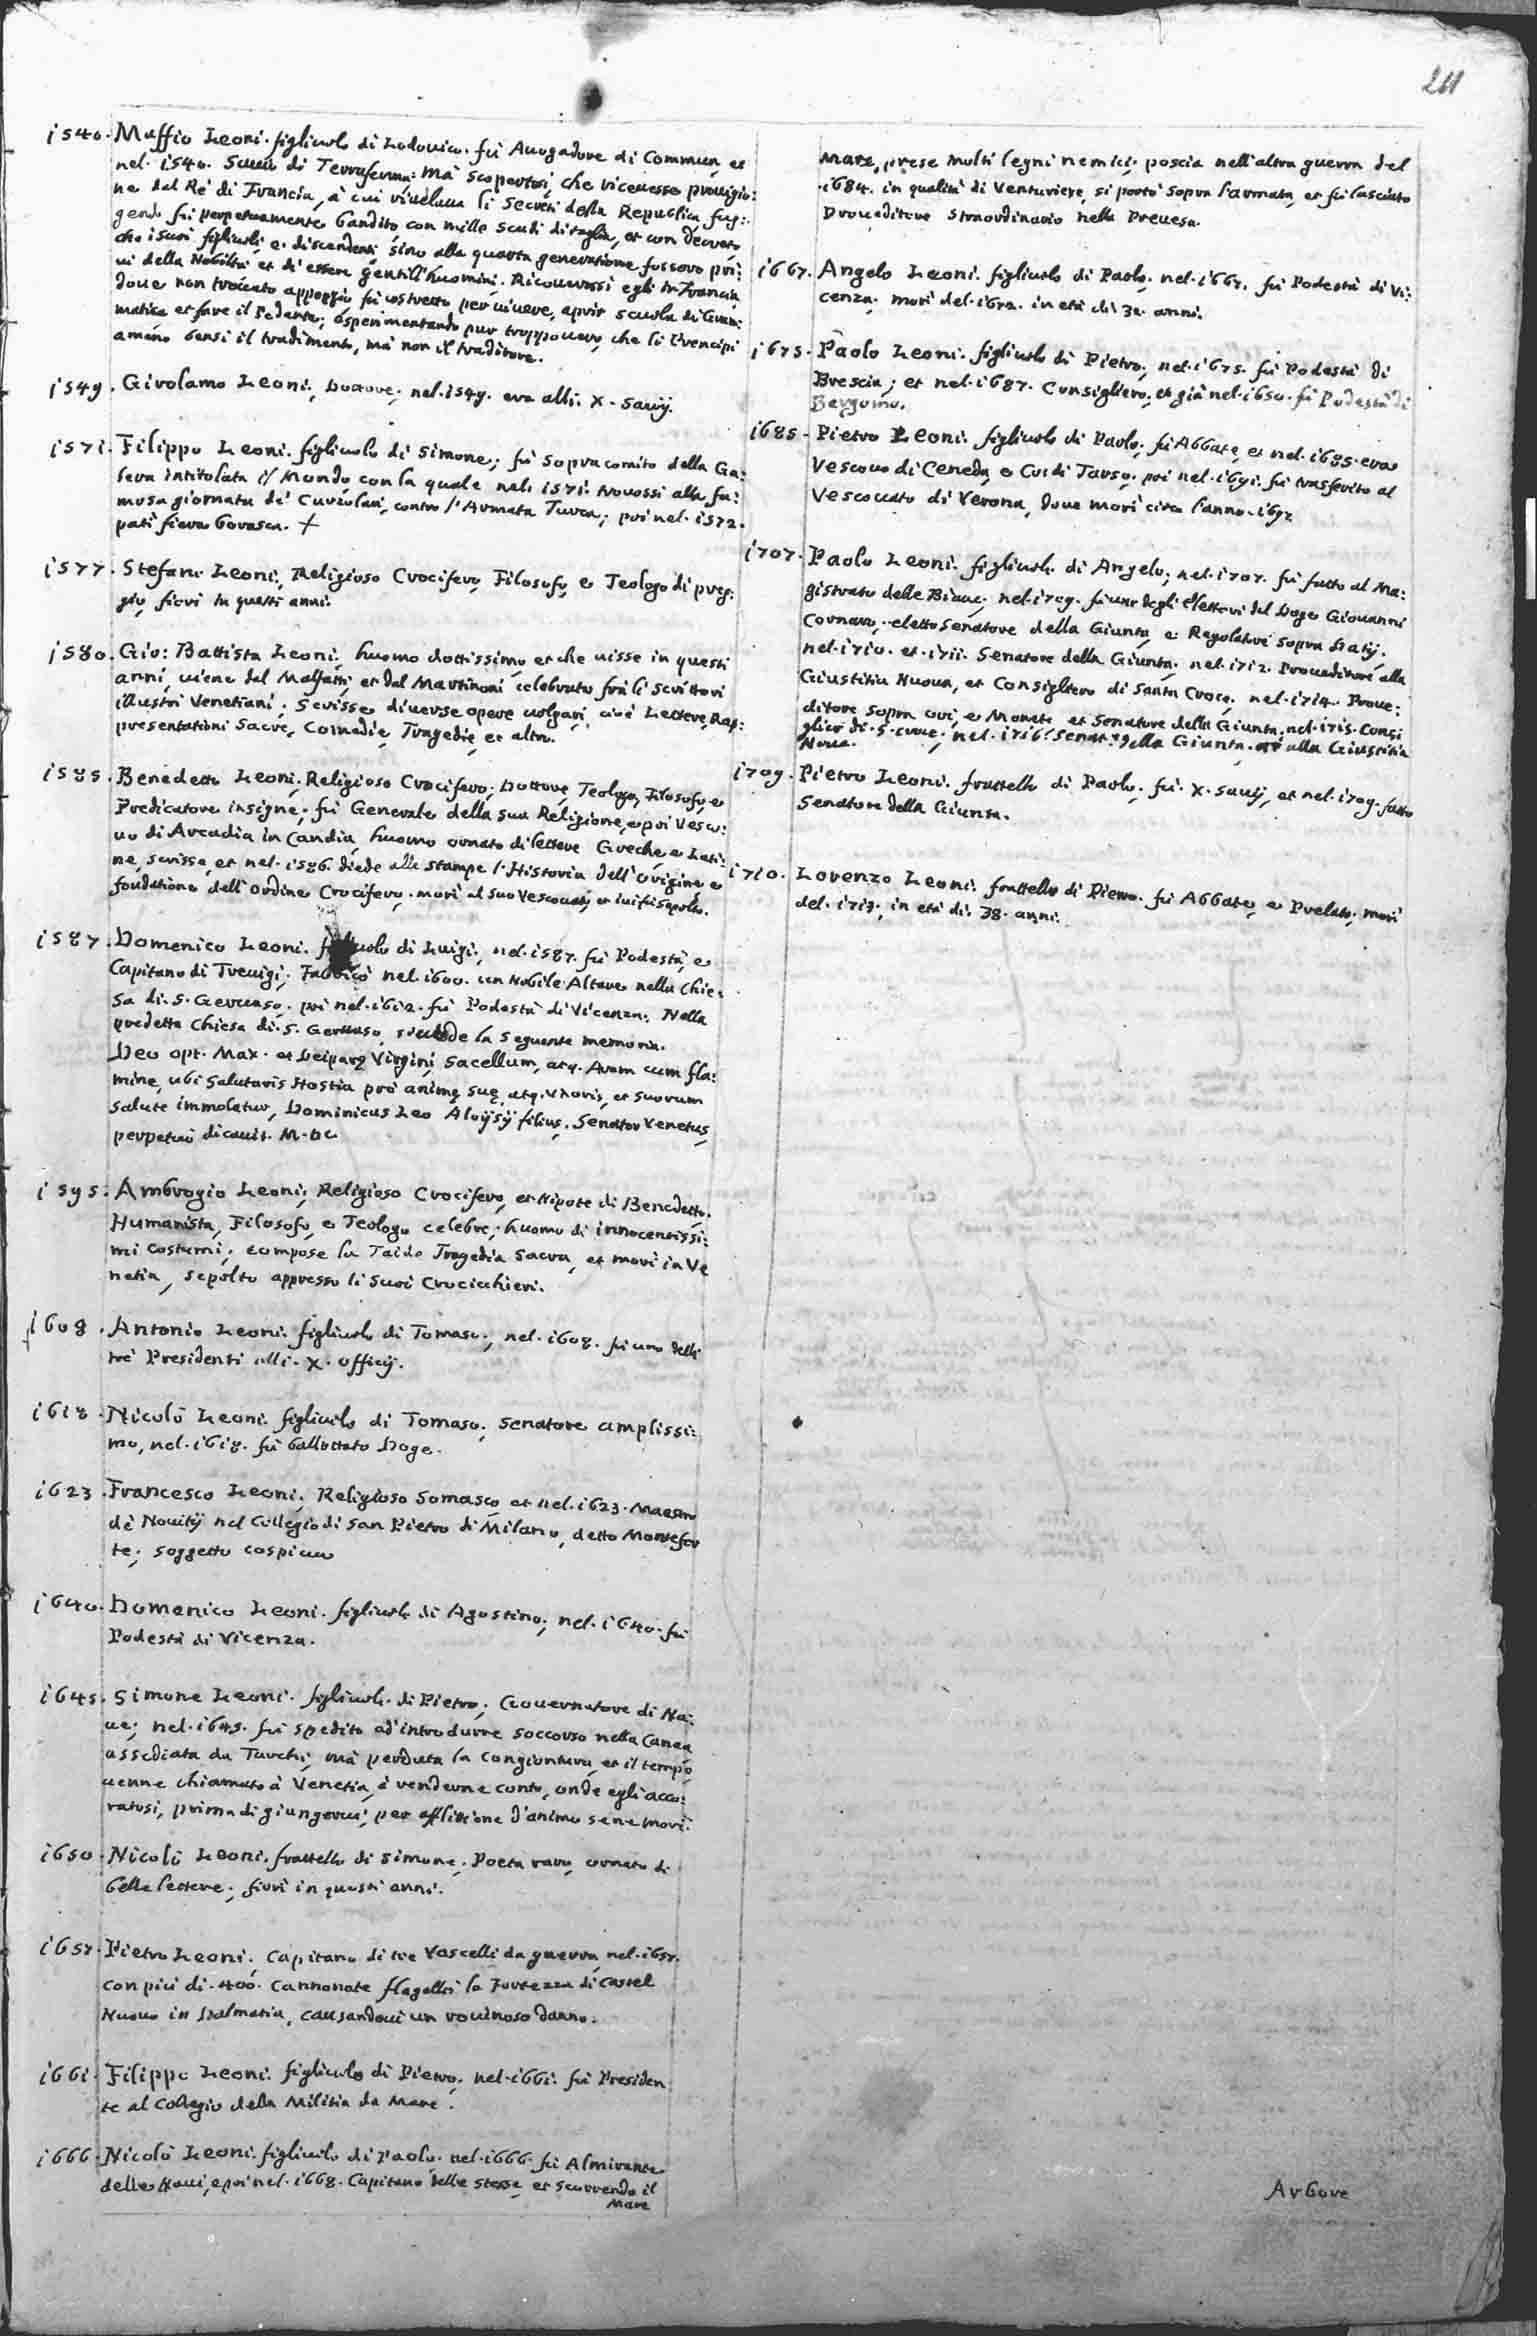 211
1540. Maffio Leoni. figliuolo di Lodouico. fù Auogadore di Commun, et
nel. 1540. Sauio di Terraferma: mà scopertosi, che riceuesse prouigio:
ne dal Rè di Francia, à cui riuelaua li Secreti della Republica, fug:
gendo fù perpetuamente bandito con mille scudi di taglia, et con decreto
che i suoi figliuoli, e discendenti sino alla quarta generatione fossero pri:
ui della Nobiltà et di essere gentill'huomini. Ricouerossi egli in Francia
doue non trouato appoggio fù costretto per uiuere, aprir scuola di Gram:
matica et fare il Pedante; esperimentando pur troppo uero, che li Prencipi
amano bensi il tradimento, mà non il traditore.
1549. Girolamo Leoni, Dottore; nel. 1549. era alli. X. Sauij.
1571. Filippo Leoni. figliuolo di Simone; fù Sopracomito della Ga:
lera intitolata il Mondo con la quale nel. 1571. trouossi alla fa:
mosa giornata de' Curzolari, contro l'Armata Turca; poi nel. 1572.
patì fiera borasca. +
1577. Stefano Leoni, Religioso Crocifero, Filosofo, e Teologo di preg:
gio, fiorì in questi anni.
1580. Gio: Battista Leoni, huomo dottissimo, et che uisse in questi
anni, uiene dal Malfatti, et dal Martinoni celebrato frà li Scrittori
illustri Venetiani; Scrisse diuerse opere uolgari, cioè Lettere, Rap:
presentationi Sacre, Comedie, Tragedie et altro.
1585. Benedetto Leoni, Religioso Crocifero. Dottore, Teologo, Filosofo, e
Predicatore insigne; fù Generale della sua Religione, e poi Vesco:
uo di Arcadia in Candia, huomo ornato di lettere Greche e Lati:
ne, scrisse, et nel. 1586. diede alle stampe l'Historia dell'origine, e
fondatione dell'ordine Crocifero. morì al suo Vescouato, et iui fù sepolto.
1587. Domenico Leoni. figliuolo di Luigi, nel. 1587. fù Podestà, e
Capitano di Treuigi. Fabbricò nel. 1600. un Nobile Altare nella Chie:
sa di. S. Geruaso. poi nel. 1612. fù Podestà di Vicenza. Nella
predetta Chiesa di. S. Geruaso, si uede la seguente memoria.
Deo opt. Max. et Deiparę Virgini Sacellum, atq. Aram cum fla:
mine, ubi Salutaris Hostia prò animę suę, atq. Vxoris, et Suorum
salute immoletur, Dominicus Leo Aloÿsÿ filius, Senator Venetus
perpetuò dicauit. M.DC
1595. Ambrogio Leoni, Religioso Crocifero, et Nipote di Benedetto.
Humanista, Filosofo, e Teologo celebre; huomo di innocentissi:
mi costumi; compose la Taide Tragedia Sacra, et morì in Ve
netia, sepolto appresso li suoi Crocicchieri.
1608. Antonio Leoni. figliuolo di Tomaso; nel. 1608. fù uno delli
trè Presidenti alli. X. officij.
1618. Nicolò Leoni figliuolo di Tomaso; Senatore amplissi:
mo, nel. 1618. fù ballottato Doge.
1623. Francesco Leoni; Religioso Somasco et nel. 1623. Maestro
dè Nouitij nel Collegio di San Pietro di Milano, detto Montefor
te; soggetto cospicuo
1640. Domenico Leoni. figliuolo di Agostino; nel. 1640. fù
Podestà di Vicenza.
1645. Simone Leoni. figliuolo. di Pietro; Gouernatore di Na:
ue; nel. 1645. fù spedito ad introdurre soccorso nella Canea
assediata da Turchi; mà perduta la congiontura, et il tempo
uenne chiamato à Venetia, à renderne conto, onde egli acco:
ratosi, prima di giungerui, per afflittione d'animo se ne morì.
1650. Nicolò Leoni. frattello di Simone; Poeta raro, ornato di
belle lettere; fiorì in questi anni.
1657. Pietro Leoni; Capitano di tre Vascelli da guerra, nel. 1657.
con più di. 400. Cannonate flagellò la Fortezza di Castel
Nuouo in Dalmatia, causandoui un rouinoso danno.
1661. Filippo Leoni. figliuolo di Pietro; nel. 1661. fù Presiden
te al Collegio della Militia da Mare.
1666. Nicolò Leoni. figliuolo di Paolo. nel. 1666. fù Almirante
delle Naui, e poi nel. 1668. Capitano delle stesse, et scorrendo il
Mare
Mare, prese molti legni nemici; poscia nell'altra guerra del
1684. in qualità di Venturiere, si portò sopra l'armata, et fù lasciato
Proueditore Straordinario nella Preuesa.
1667. Angelo Leoni. figliuolo di Paolo; nel. 1667. fù Podestà di Vi:
cenza; morì del. 1672. in età di 32. anni.
1675. Paolo Leoni. figliuolo di Pietro; nel. 1675. fù Podestà di
Brescia; et nel. 1687. Consigliero; et già nel. 1650. fù Podestà di
Bergomo.
1685. Pietro Leoni. figliuolo di Paolo; fù Abbate, et nel. 1685. era
Vescouo di Ceneda, e Co: di Tarso; poi nel. 1691. fù trasferito al
Vescouato di Verona, doue morì circa l'anno. 1697
1707. Paolo Leoni. figliuolo. di Angelo; nel. 1707. fù fatto al Ma:
gistrato delle Biaue; nel. 1709. fù uno degli elettori del Doge Giouanni
Cornaro; eletto Senatore della Giunta, e Regolatore sopra Datij.
nel. 1710. et. 1711. Senatore della Giunta; nel. 1712. Proueditore alla
Giustitia Nuoua, et Consigliero di Santa Croce; nel. 1714. Proue:
ditore sopra ori, e Monete et Senatore della Giunta; nel. 1715. Consi
glier di. S. croce; nel. 1716. Senat.re della Giunta. et alla Giustitia
Noua.
1709. Pietro Leoni. frattello di Paolo; fù. X. Sauij, et nel. 1709. fatto
Senatore della Giunta.
1710. Lorenzo Leoni. frattello di Pietro. fù Abbate, e Prelato; morì
del. 1713; in età di. 38. anni.
Arbore